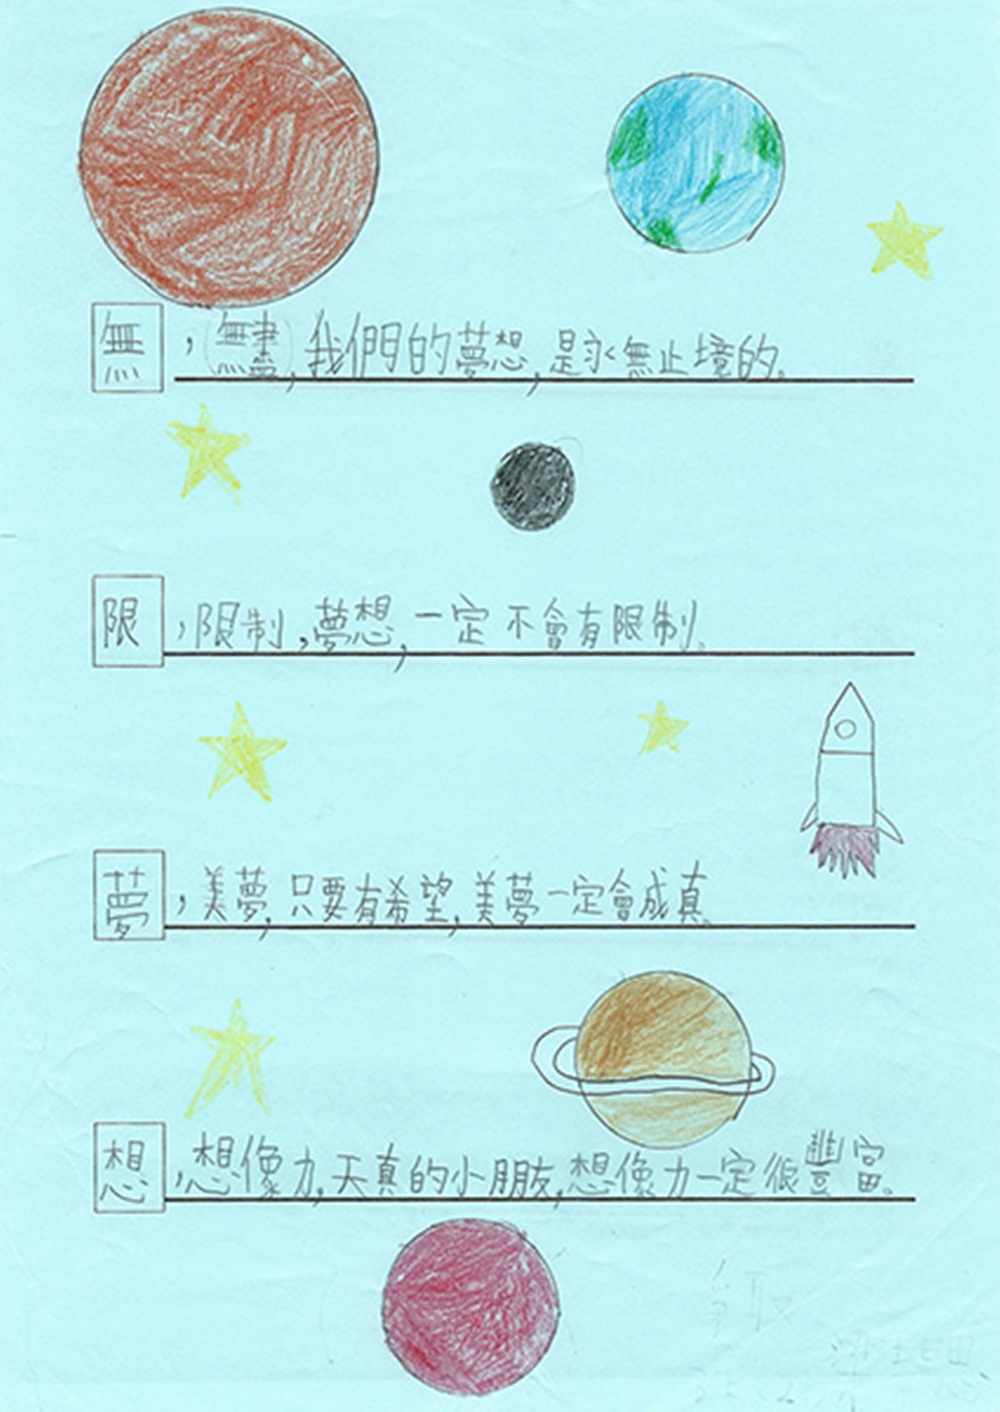 無，無盡，我們的夢想，是永無止境的。
限，限制，夢想，一定不會有限制。
夢，美夢，只要有希望，美夢一定會成真。
想，想像力，天真的小朋友，想像力一定很豐富。